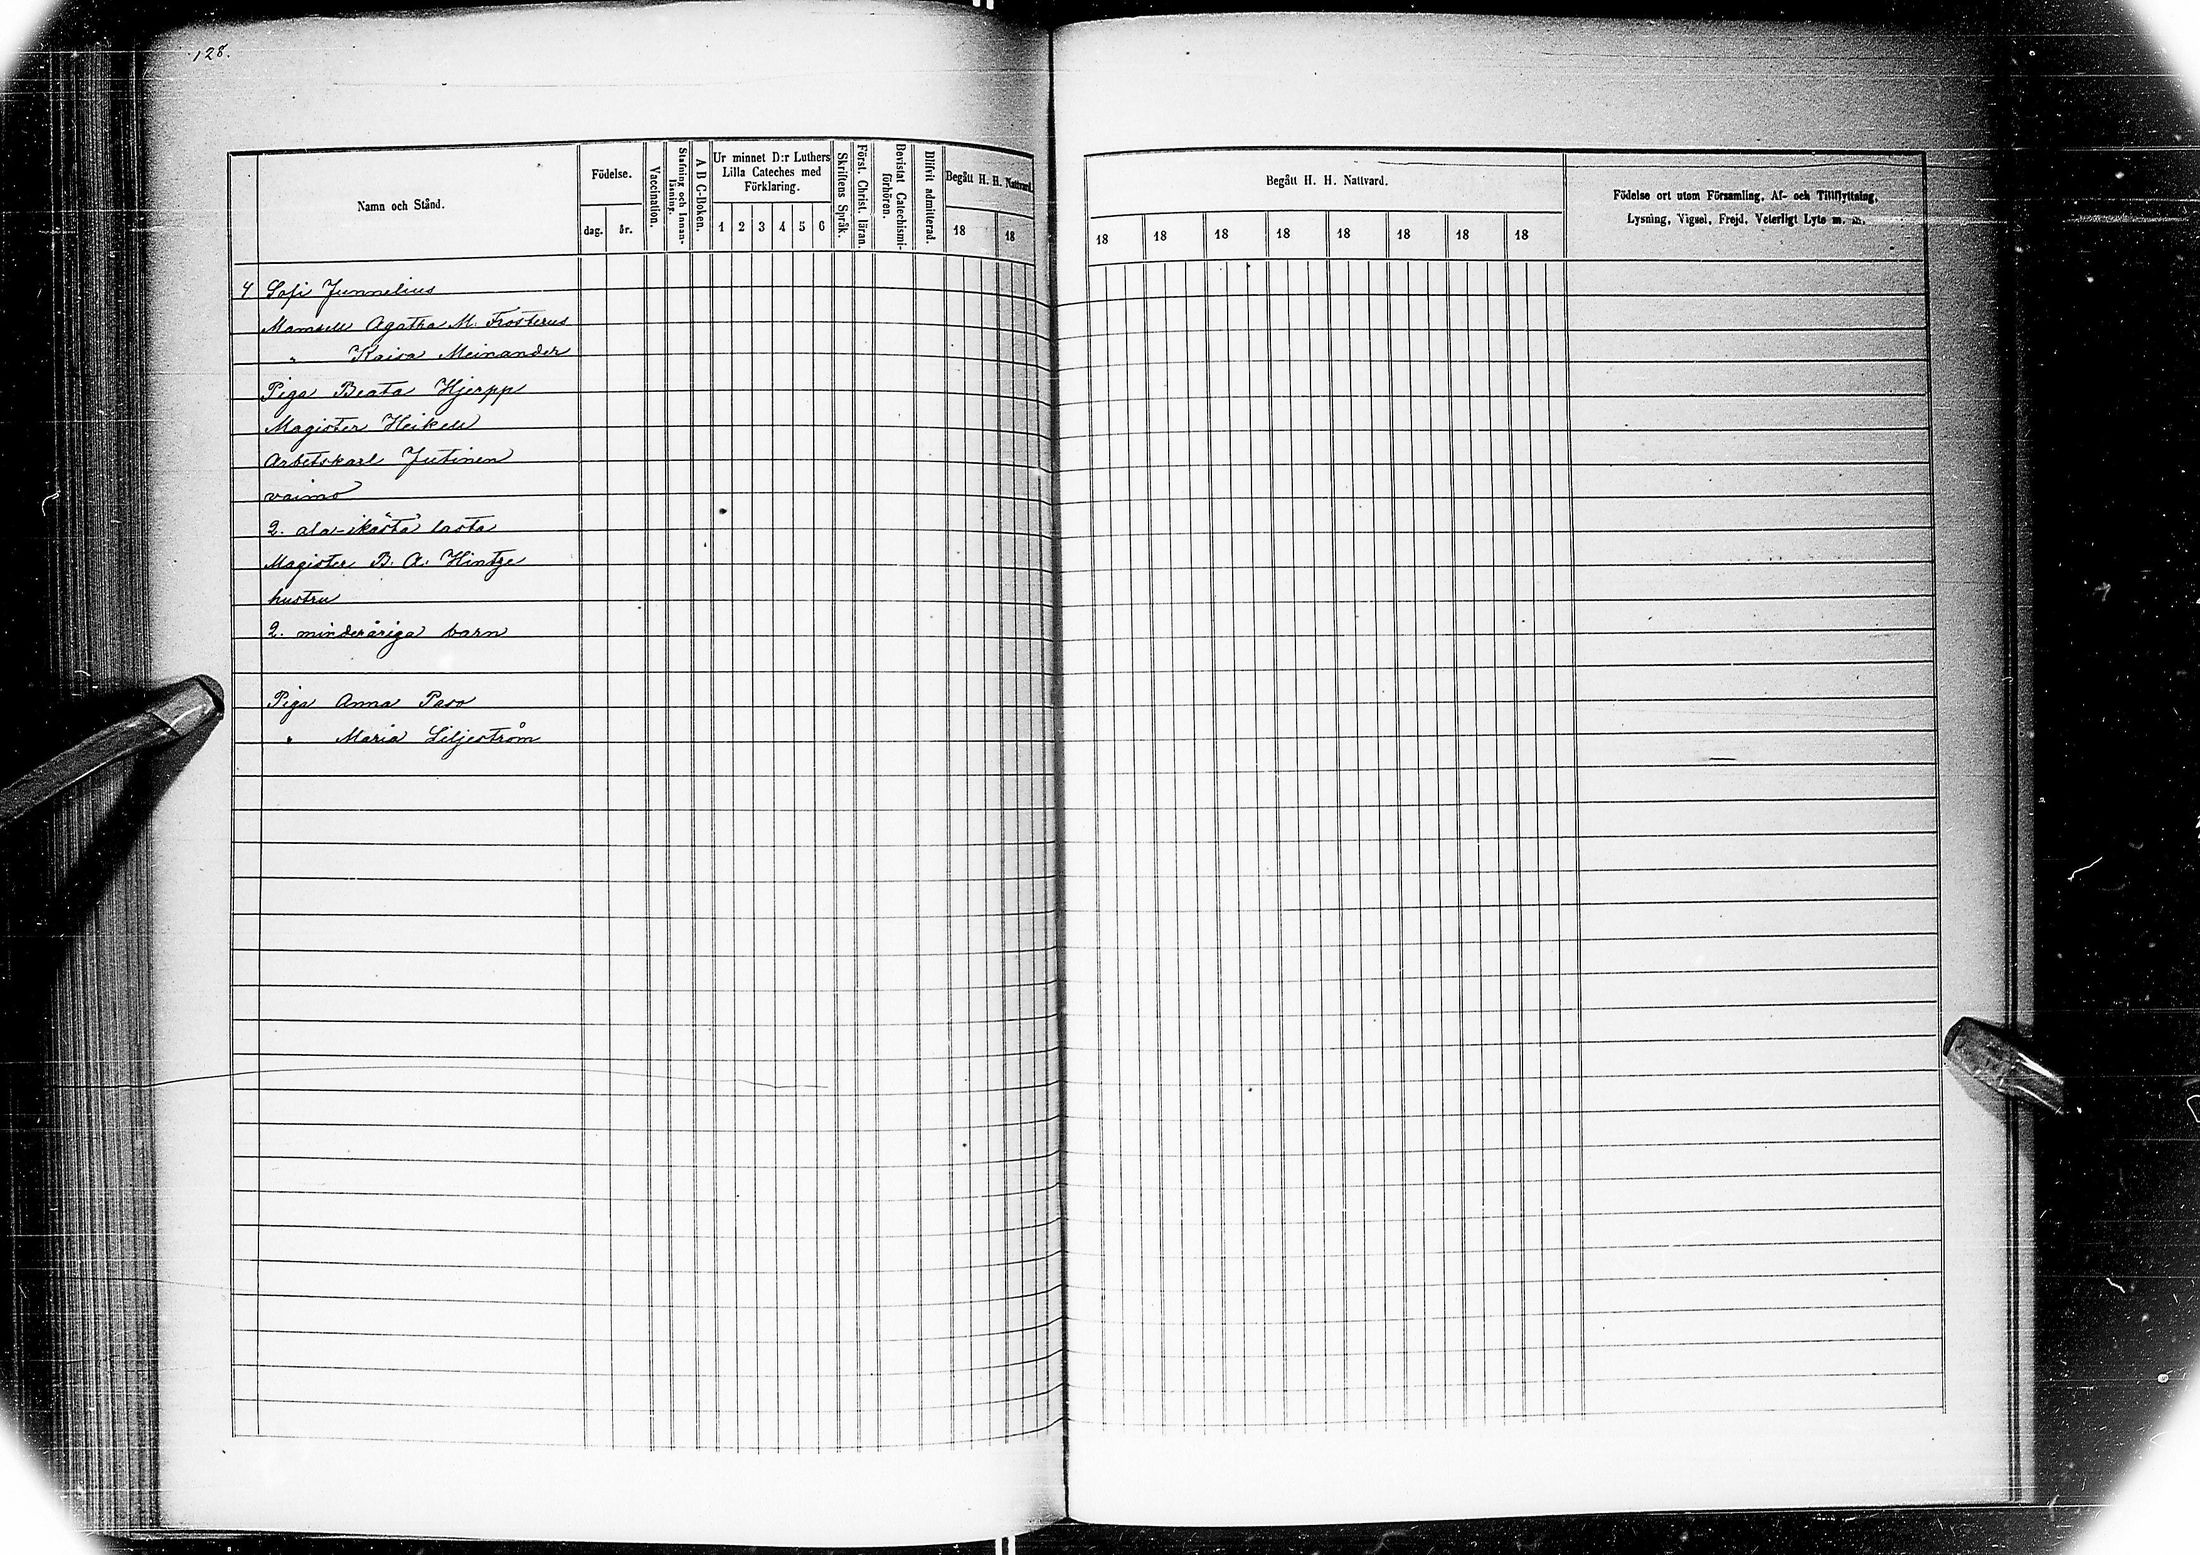 128.
Namn och Stånd.
Födelse.
dag.
år.
Vaccination.
Stafning och Innan-
läsning.
A B C-Boken.
Ur minnet D:r Luthers
Lilla Cateches med
Förklaring.
1 2 3 4 5 6
Skriftens Språk.
Först. Christ. läran.
Bevistat Catechismi-
förhören.
Blifvit admitterad.
Begått H. H. Nattvard.
18 18
4 Sofi Junnelius
Mamsell Agatha M. Frosterus
" Kaisa Meinander
Piga Beata Hjerpp
Magister Heikell
Arbetskarl Jutinen
vaimo
2. ala-ikästä lasta
Magister B. A. Hintze
hustru
2. minderåriga barn
Piga Anna Paso
" Maria Liljeström
Begått H. H. Nattvard.
18 18 18 18 18 18 18 18
Födelse ort utom Församling, Af- och Tillflyttning,
Lysning, Vigsel, Frejd, Veterligt Lyte m. m.